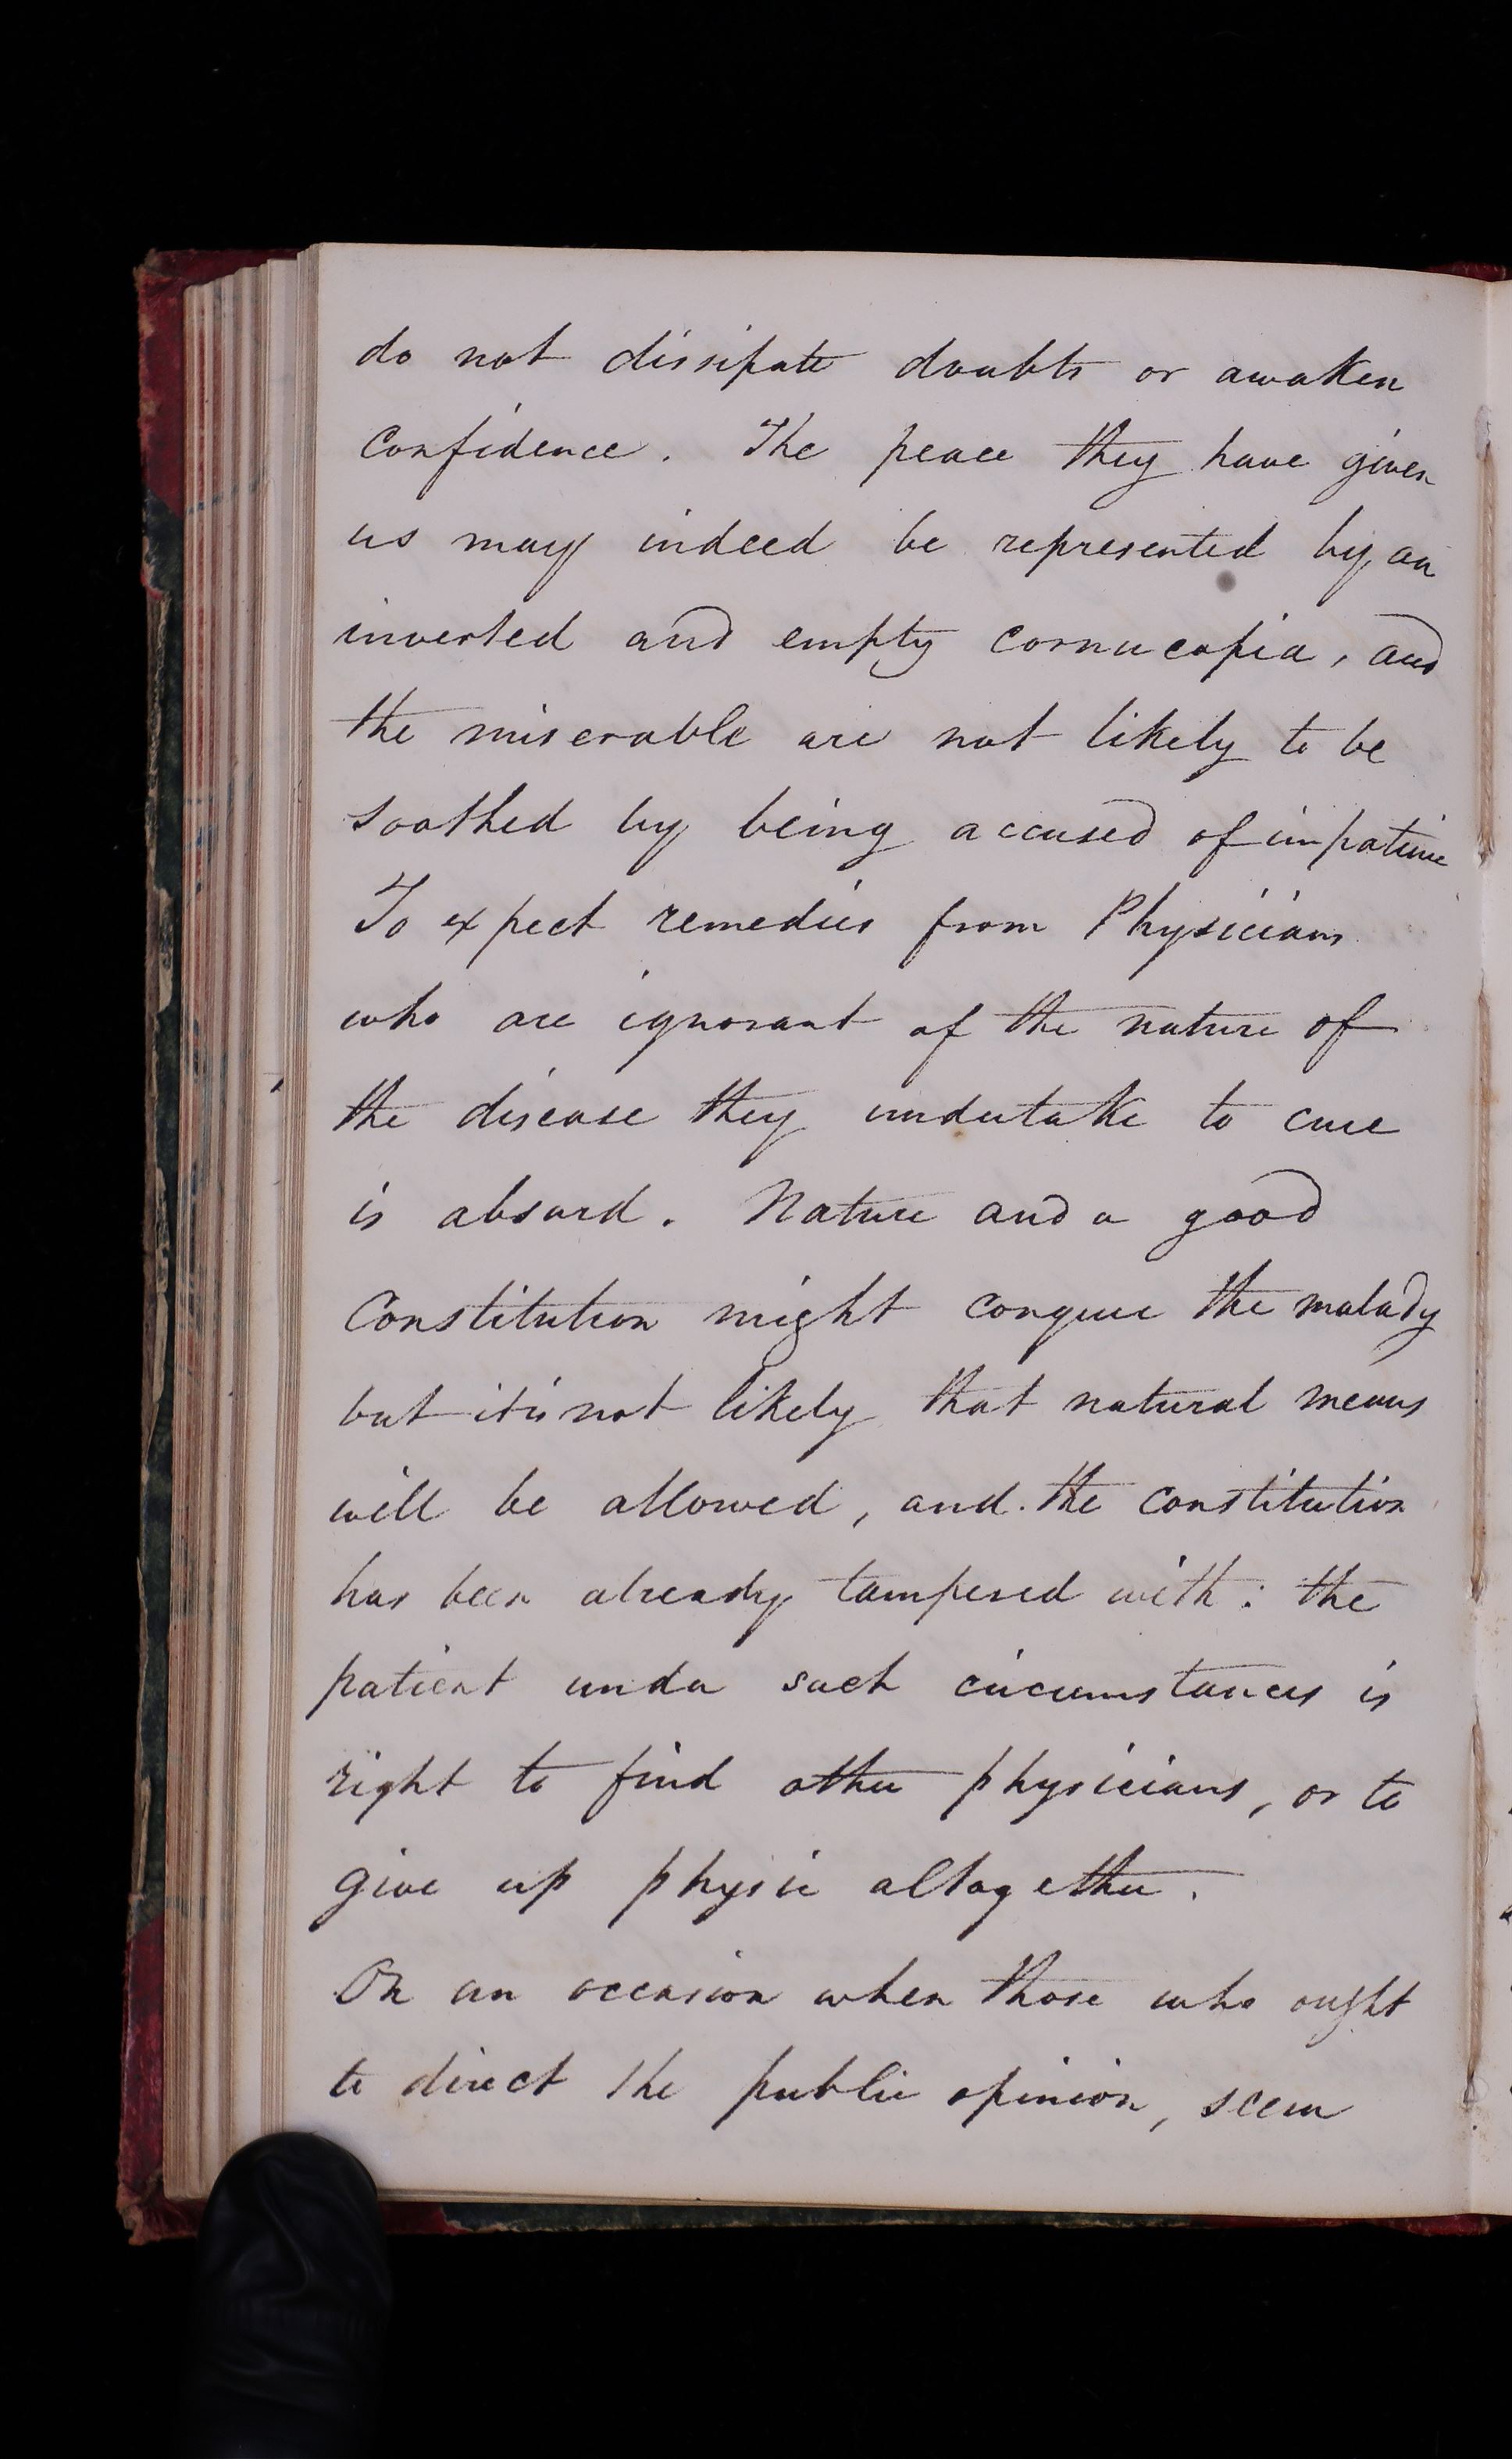 do not dissipate doubts or awaken
confidence. The peace they have given
us may indeed be represented by an
inverted and empty cornucopia, and
the miserable are not likely to be
soothed by being accused of impatience
To expect remedies from Physicians
who are ignorant of the nature of
the disease they undertake to cure
is absurd. Nature and a good
Constitution might conquer the malady
but it is not likely that natural means
will be allowed, and the constitution
has been already tampered with: the
patient under such circumstances is
right to find other physicians, or to
give up physic altogether.
On an occasion when those who ought
to direct the public opinion, seem